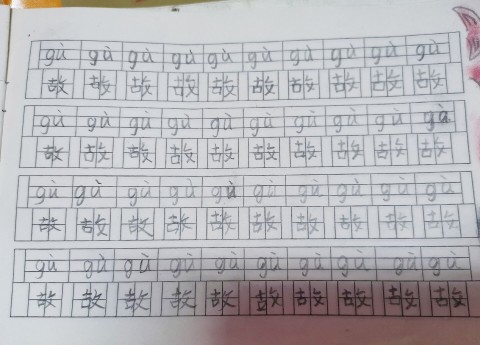 gù gù gù gù gù gù gù gù gù gù
故 故 故 故 故 故 故 故 故 故
gù gù gù gù gù gù gù gù gù gù
故 故 故 故 故 故 故 故 故 故
gù gù gù gù gù gù gù gù gù gù
故 故 故 故 故 故 故 故 故 故
gù gù gù gù gù gù gù gù gù gù
故 故 故 故 故 故 故 故 故 故